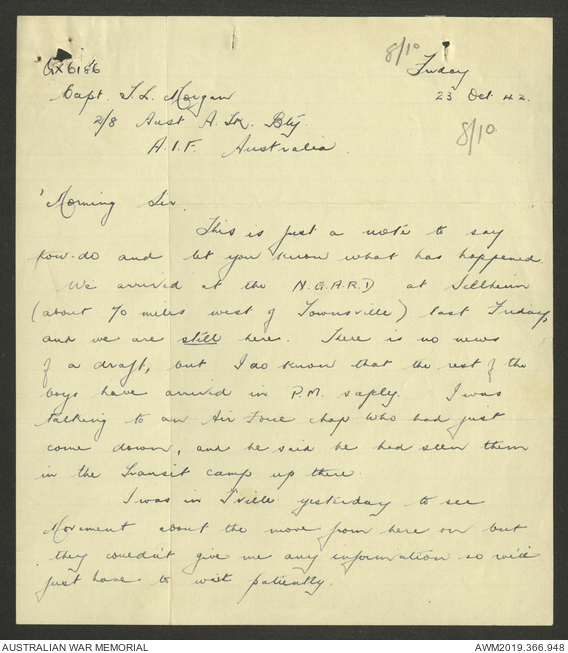 8/10
QX6186 Friday
Capt. T.L. Morgan 23 Oct. 42.
2/8 Aust A. Tk. Bty 8/10
A.I.F. Australia.
'Morning Sir.
This is just a note to say
how-do and let you know what has happened.
We arrived at the N.G.A.R.D at Sellheim
(about 70 miles west of Townsville) last Friday,
and we are still here. There is no news
of a draft, but I do know that the rest of the
boys have arrived in P.M. safely. I was
talking to an Air Force chap who had just
come down, and he said he had seen them
in the Transit camp up there.
I was in T'ville yesterday to see
Movement about the move from here on but
they couldn't give me any information so we'll
just have to wait patiently.
AUSTRALIAN WAR MEMORIAL AWM2019.366.948